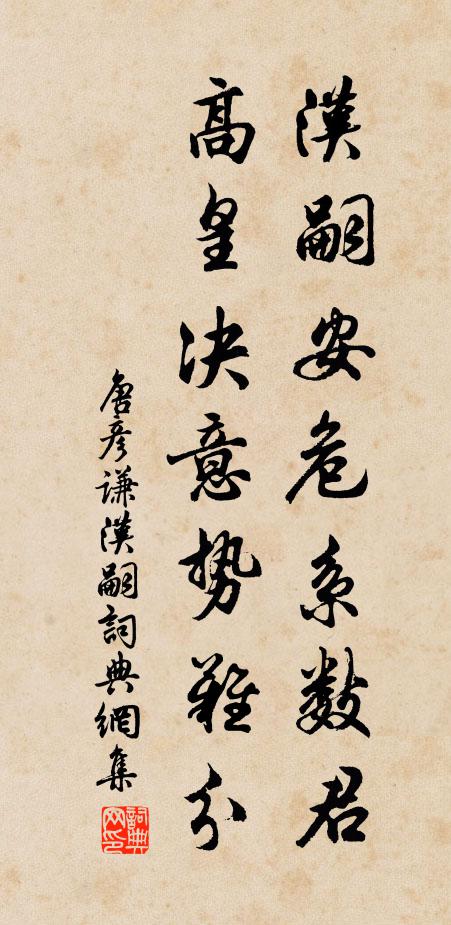 漢嗣安危系數君
高皇決意勢難分
唐彥謙漢嗣詞典網集
詞典網印